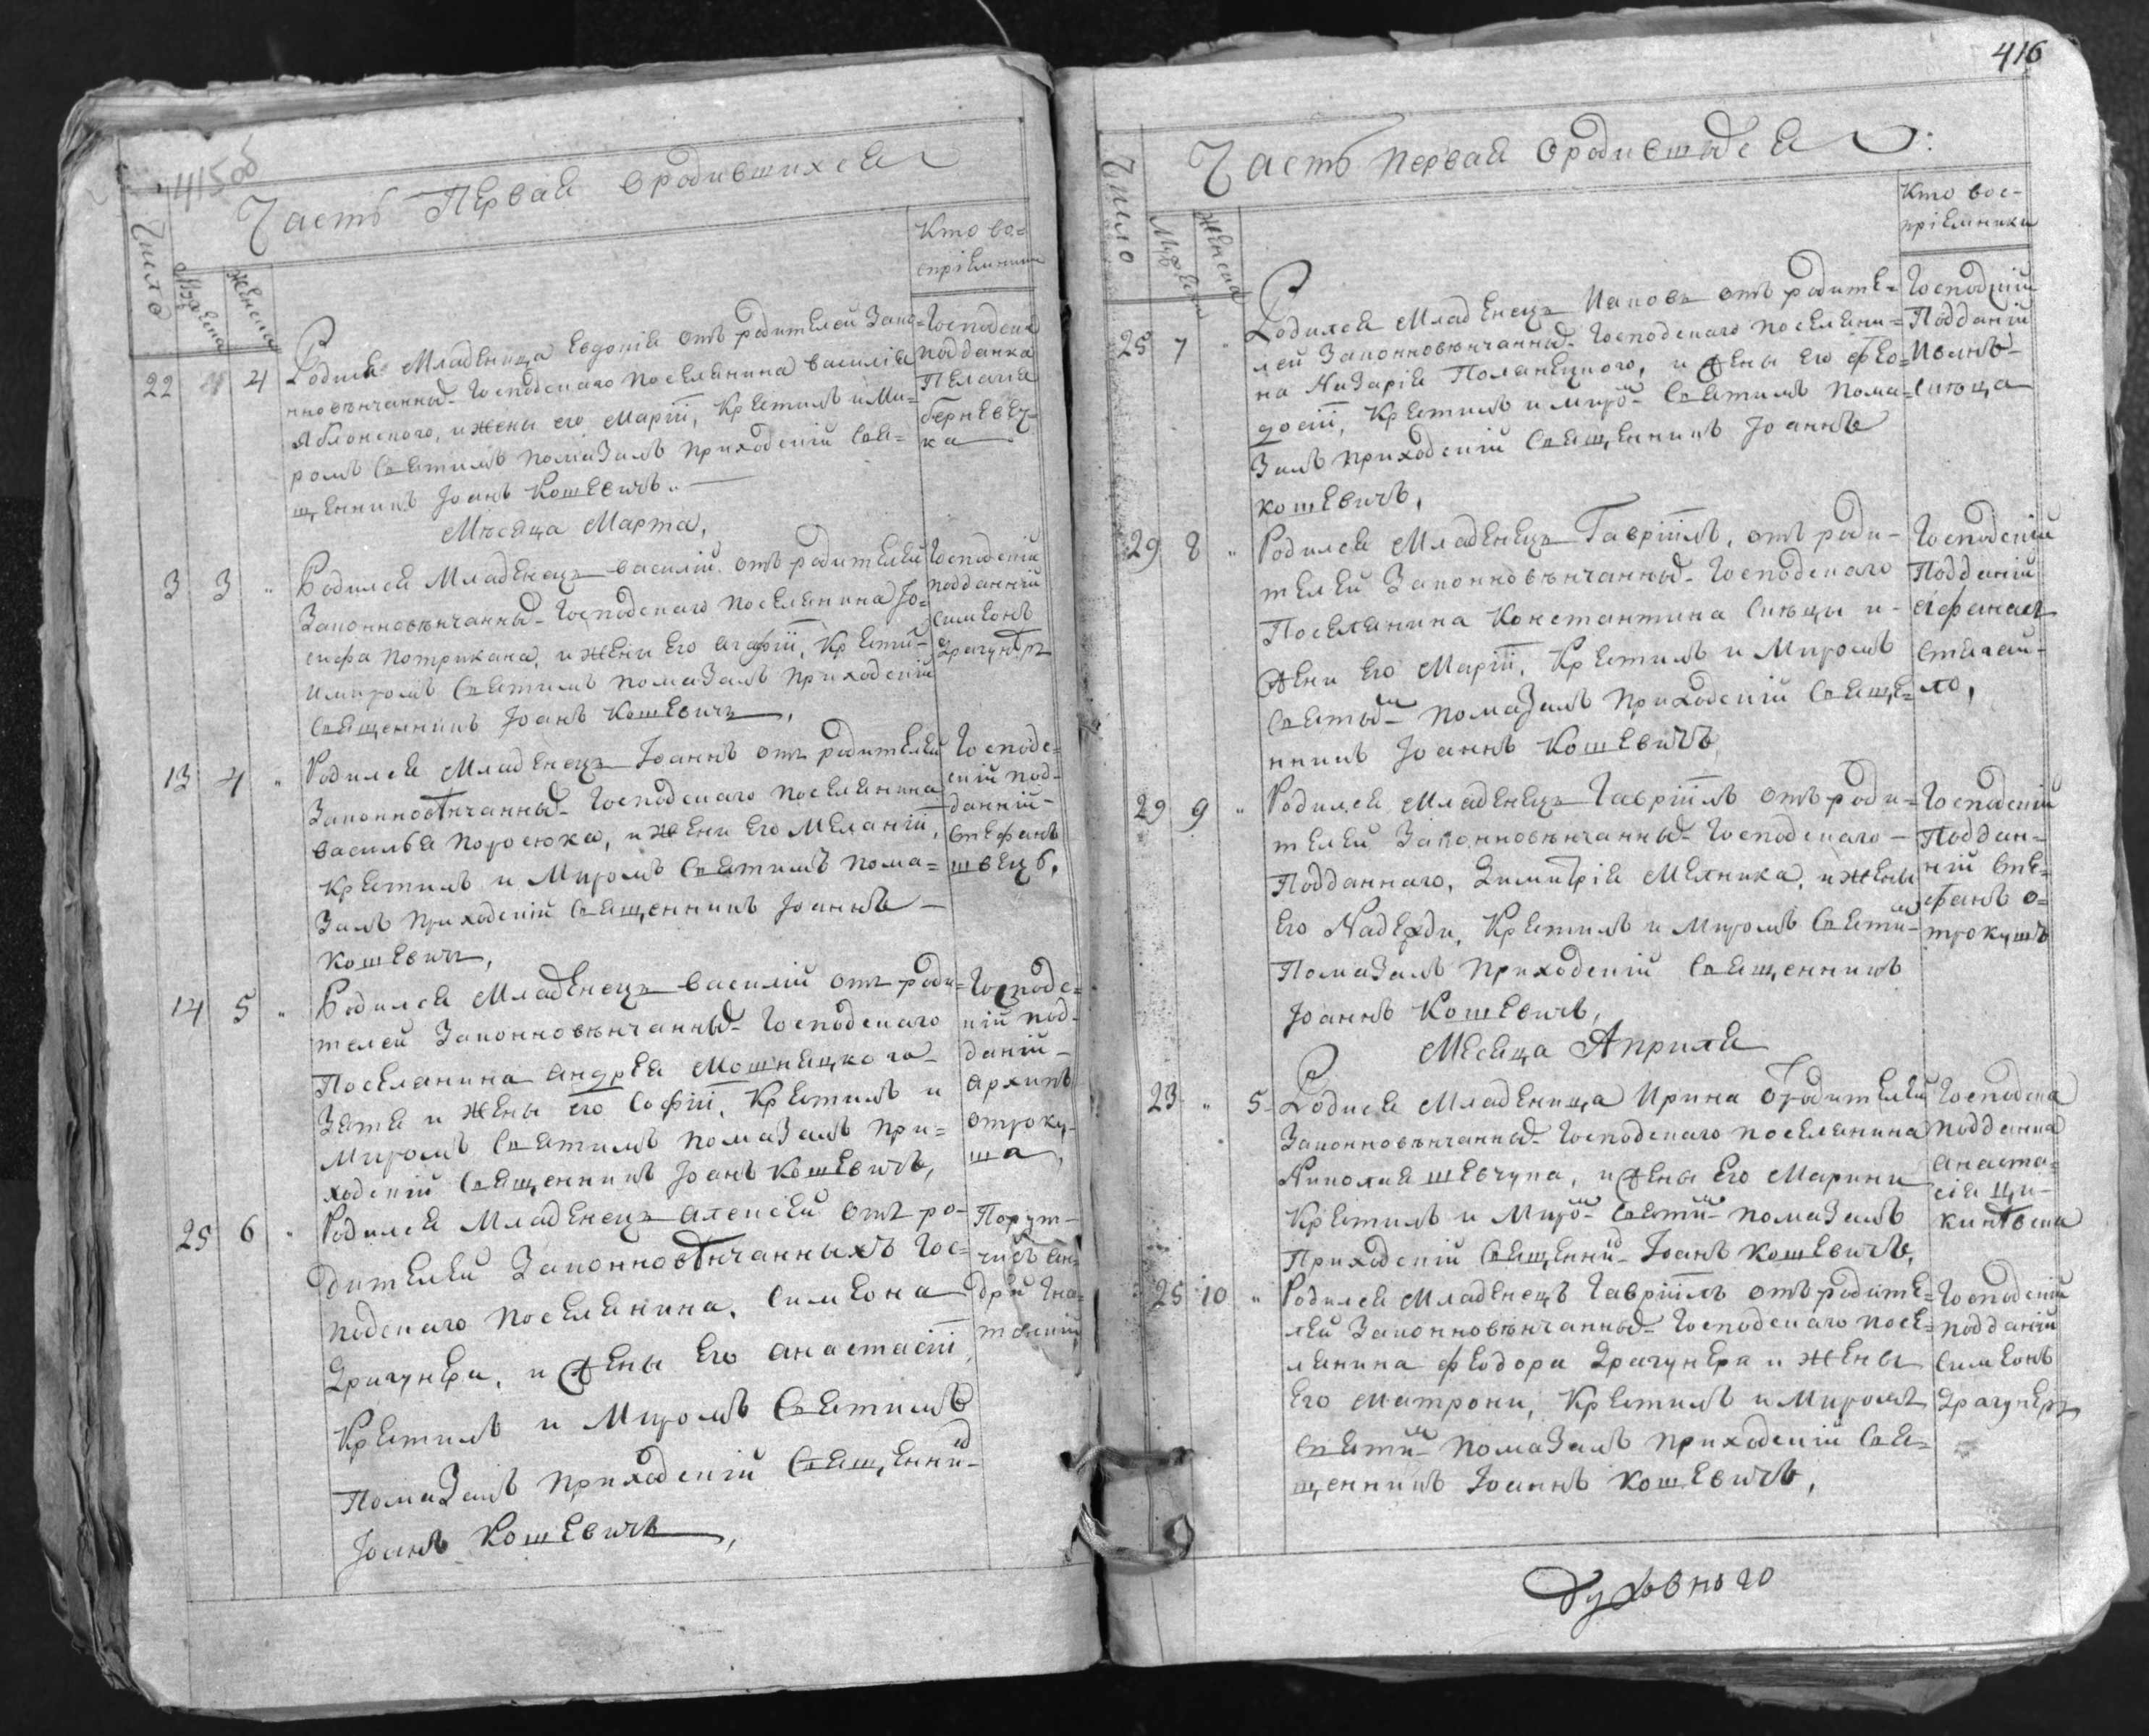 415об
Часть Первая ородившихся
Число
Мужеска
Женска
Кто во=
спріемники
22 4
Родилась Младеница Евдокія отъ родителей Зако=
нновѣнчанныхъ Господскаго Поселянина василія
Яблонского, и жены его Маріи, Крестилъ и Ми=
ромъ Святимъ помазалъ приходскій Свя=
щенникъ Іоанъ Кошевичъ.
Господска
подданка
Пелагія
ка
Мѣсяца Марта,
3 3 "
Родился Младенецъ василій отъ родителей
Законновѣнчанныхъ Господскаго Поселянина Іо=
сифа потрикана, и жени его агафіи, Крести
и миромъ Святимъ помазалъ приходскій
Священникъ Іоанъ Кошевичъ,
Господскій
подданній
Симеонъ
Драгунеръ
13 4 "
Родился Младенецъ Іоаннъ отъ родителей
Законновѣнчанныхъ Господскаго поселянина
василья поросюка, и жени его Меланіи,
Крестилъ и Миромъ Святимъ пома=
залъ приходскій Священникъ Іоаннъ
кошевичъ,
Господс=
кій под-
данній-
Стефанъ
швецъ,
14 5 "
Родился Младенецъ василій отъ роди=
телей Законновѣнчанныхъ Господскаго
Поселянина андрея Мошняцкого
Зятя и жены его Софіи, Крестилъ и
Миромъ Святимъ помазалъ при=
ходскій Священникъ Іоанъ Кошевичъ,
Господс=
кій под-
даній-
архипъ
отроку-
ша,
25 6 "
Родился Младенецъ алексей отъ ро-
дителей Законновѣнчанныхъ Гос=
подскаго поселянина, Симеона
Драгунера, и жены его анастасіи,
Крестилъ и Миромъ Святимъ
Помазалъ приходскій Священникъ
Іоанъ Кошевичъ,
Порут-
чикъ ан=
дрей Гна=
416
Часть первая ородившыхся
Число
Мужеска
Женска
Кто вос-
пріемники
25 7 "
Родился Младенецъ Іаковъ отъ родите=
лей Законновѣнчанныхъ Господскаго поселяни=
на Назарія Полянецкого, и жены его Фео=
досіи, Крестилъ и миромъ Святимъ пома=
залъ приходскій Священникъ Іоаннъ
кошевичъ,
Господскій
Подданій
Иванъ-
Сикица
29 8 "
Родился Младенецъ Гавріилъ, отъ роди-
телей Законновѣнчанныхъ Господскаго
Поселянина Константина Сикцы и-
жени его Маріи, Крестилъ и Миромъ
Святымъ помазалъ Приходскій Священ=
никъ Іоаннъ Кошевичъ
Господскій
Подданій
ло,
29 9 "
Родился Младенецъ Гавріилъ отъ роди-
телей Законновѣнчанныхъ Господскаго-
Подданнаго, Димитрія Мелника, и жены
его Надежди, Крестилъ и Миромъ Святимъ
Помазалъ приходскій Священникъ
Іоаннъ Кошевичъ,
Господскій
Поддан=
ній Сте=
фанъ о=
трокушъ
Месяца Априля
23 " 5
Родися Младеница Ирина ородителей
Законновѣнчанныхъ Господскаго поселянина
Николая шевчука, и жены его Марини
Крестилъ и Миромъ Святимъ помазалъ
Приходскій Священникъ Іоанъ кошевичъ,
Господска
подданна
анаста=
сія
25 10 "
Родился Младенецъ Гавріилъ отъ родите=
лей Законновѣнчанныхъ Господскаго посе=
лянина феодора Драгунера и жены
его матрони, Крестилъ и Миромъ
Святимъ помазалъ приходскій Свя=
щенникъ Іоаннъ кошевичъ,
Господскій
подданій
Симеонъ
Драгунеръ
Духовного